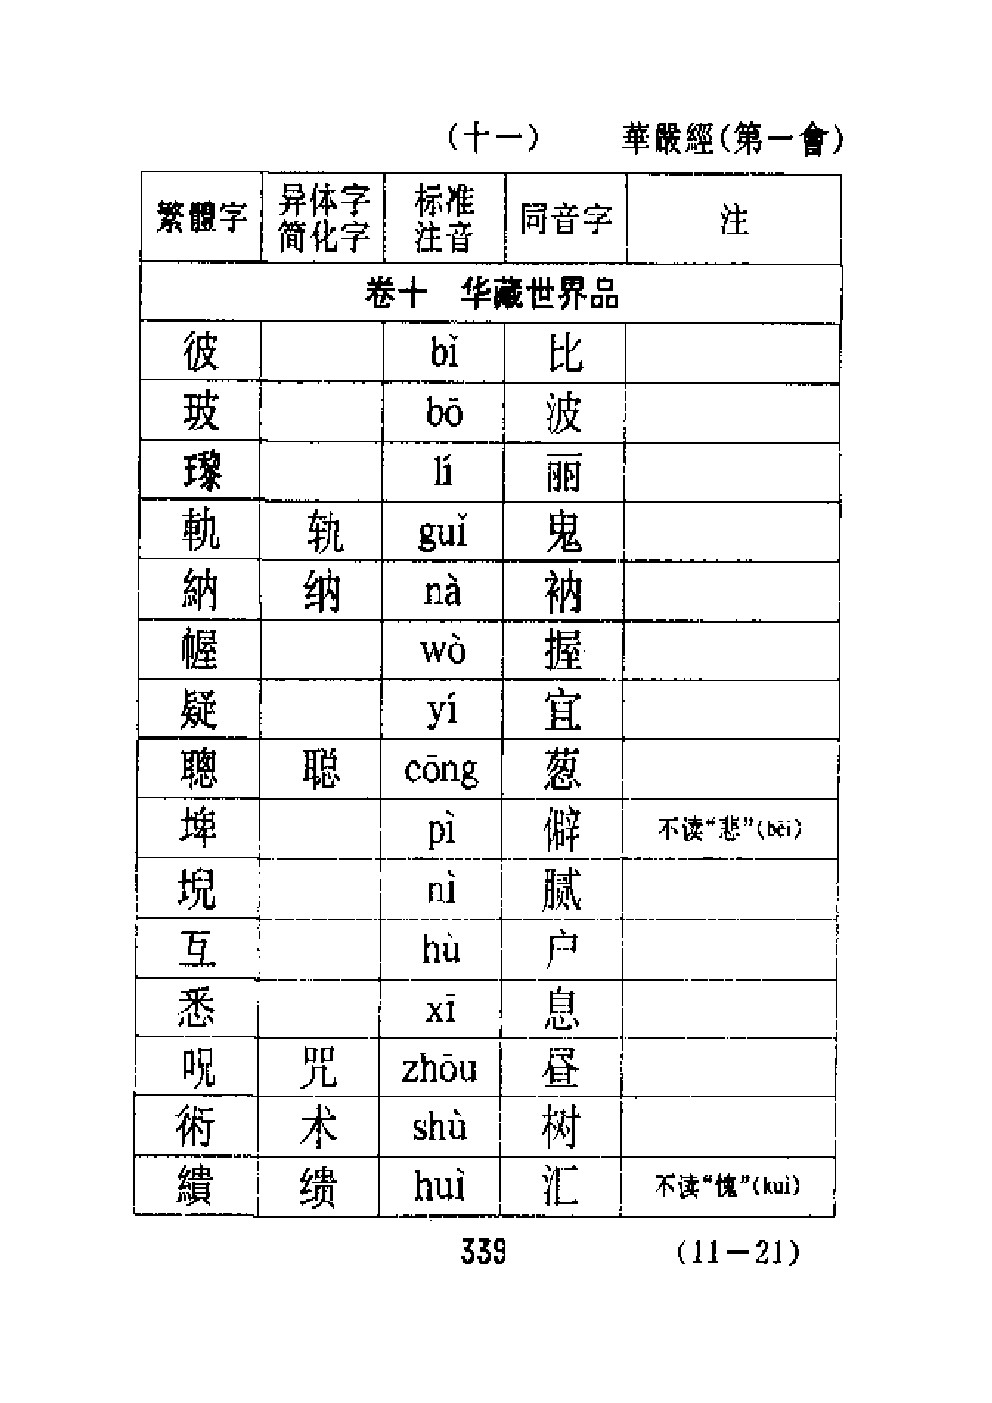 (十一) 華嚴經(第一會)
繁體字 异体字 简化字 标准注音 同音字 注
卷十 华藏世界品
彼 bǐ 比
玻 bō 波
瓈 lí 丽
軌 轨 guǐ 鬼
納 纳 nà 衲
幄 wò 握
疑 yí 宜
聰 聪 cōng 葱
埤 pì 僻 不读“悲”(bēi)
堄 nì 腻
互 hù 户
悉 xī 息
呪 咒 zhōu 昼
術 术 shù 树
繢 缋 huì 汇 不读“愧”(kuì)
339 (11－21)